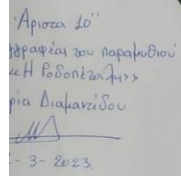 Άριστα 10"
γγραφέας του παραμυθιού
«Η Ροδοπέταλη»
ρία Διαμαντίδου
- 3 - 2023.